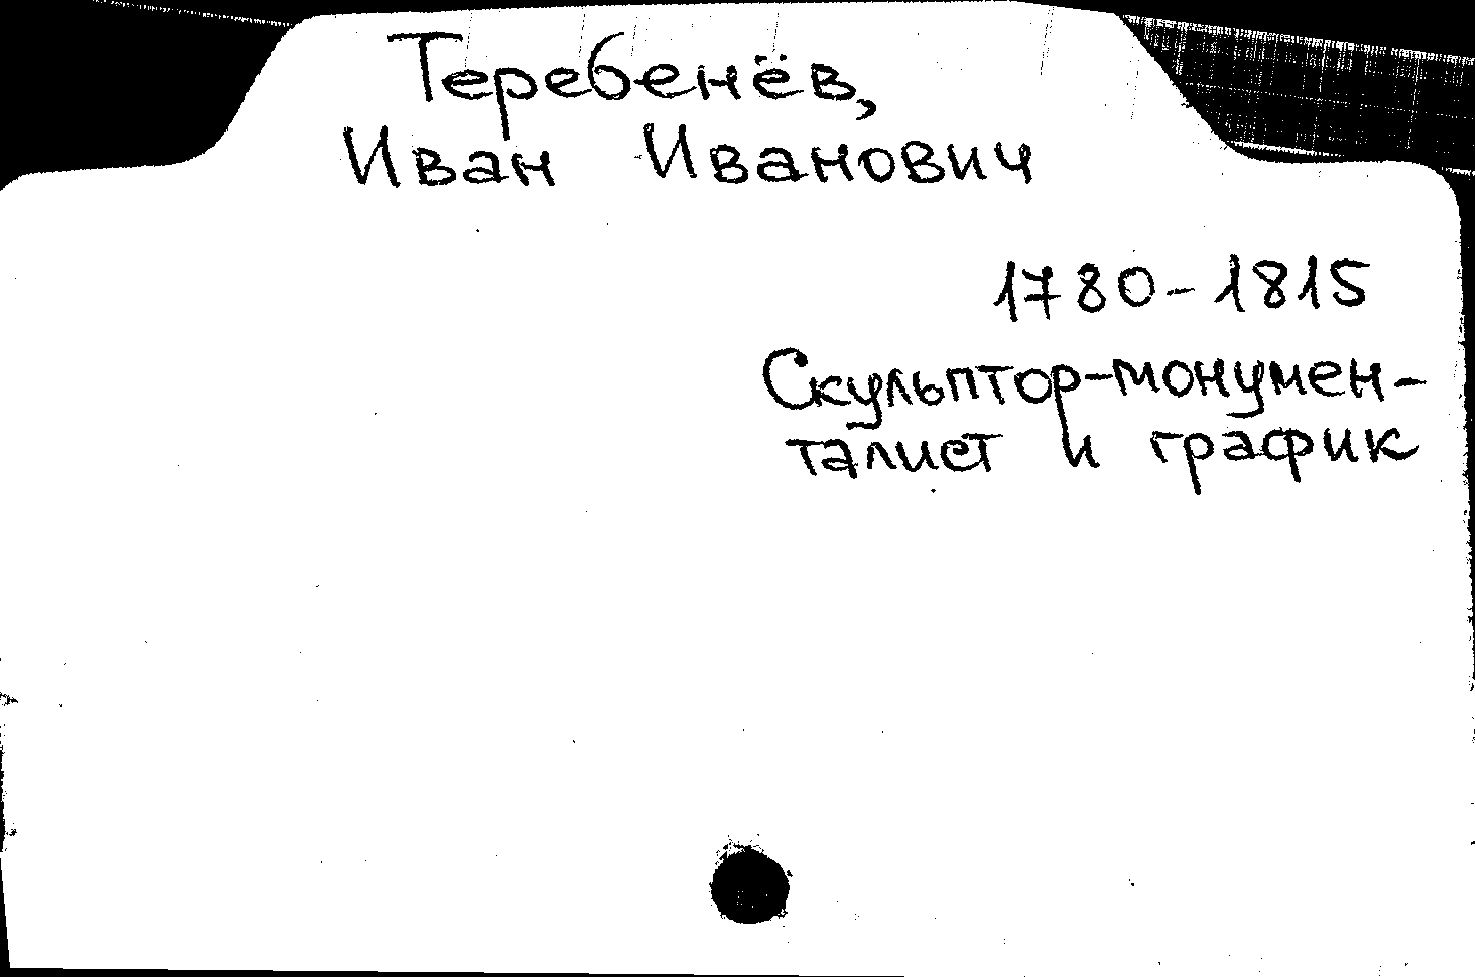 Теребенёв,
Иван Иванович
1780-1815
Скульптор-монумен-
талист и график